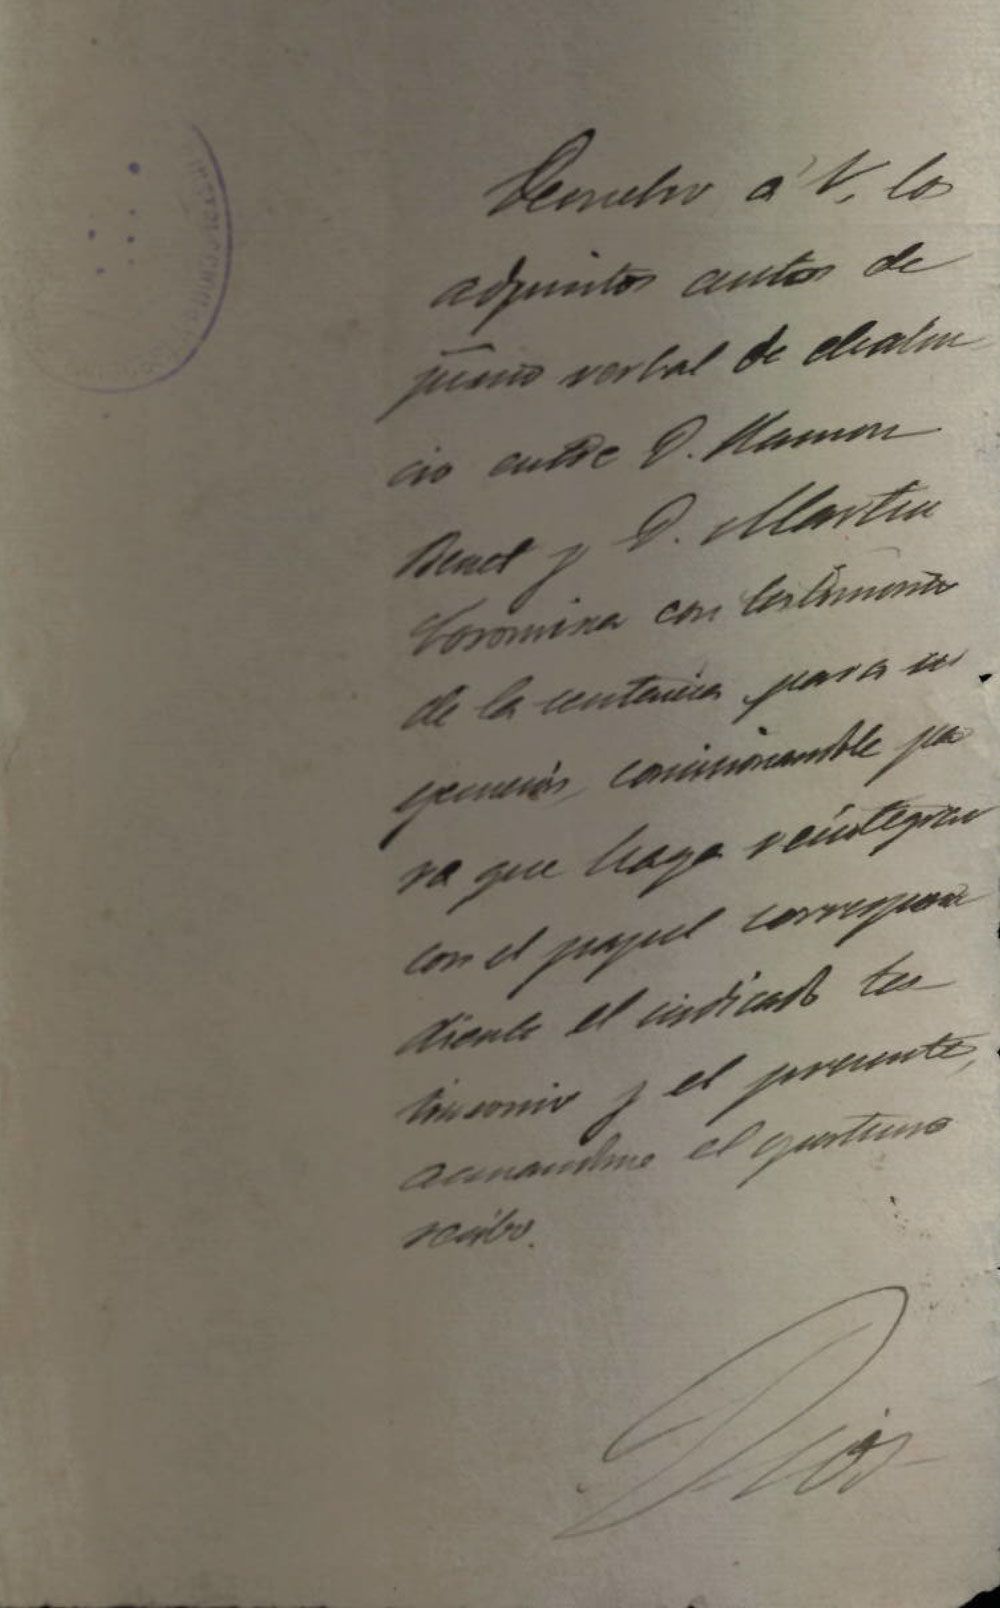 Devuelvo á V. los
adjuntos autos de
juicio verbal de desahu
cio entre D. Ramon
Benet y D. Martin
Coromina con testimonio
de la sentencia para su
ejecucion, comisionandole pa
ra que haga reintegrar
con el papel correspon
diente el indicado tes
timonio y el presente,
acusandome el oportuno
recibo.
Dios